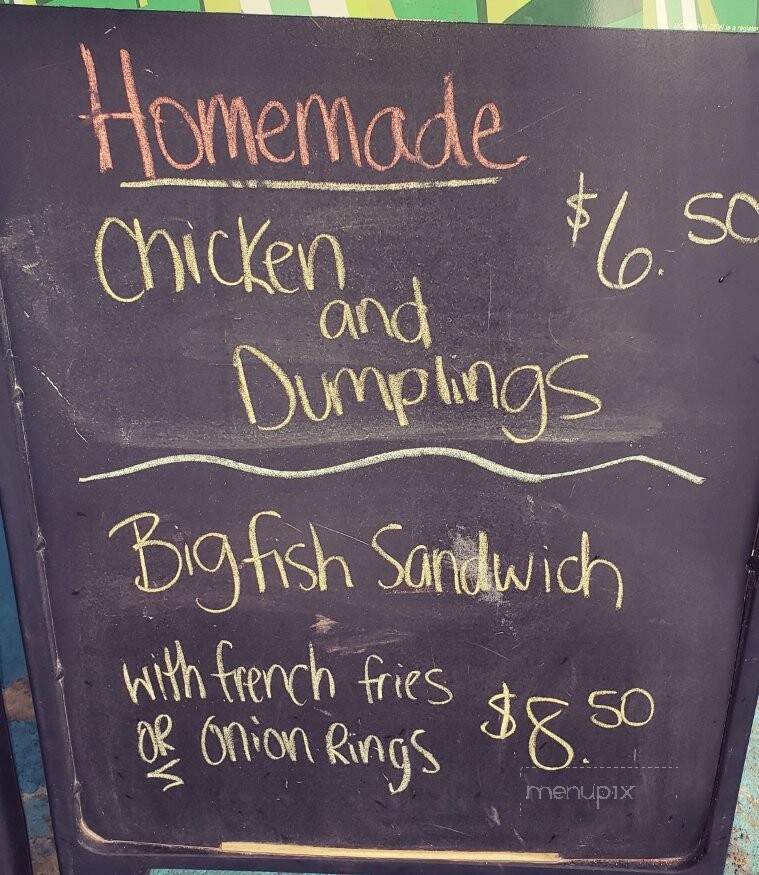 Homemade
Chicken $6.50
and
Dumplings
Bigfish Sandwich
with french fries
OR onion Rings $8.50
menupix